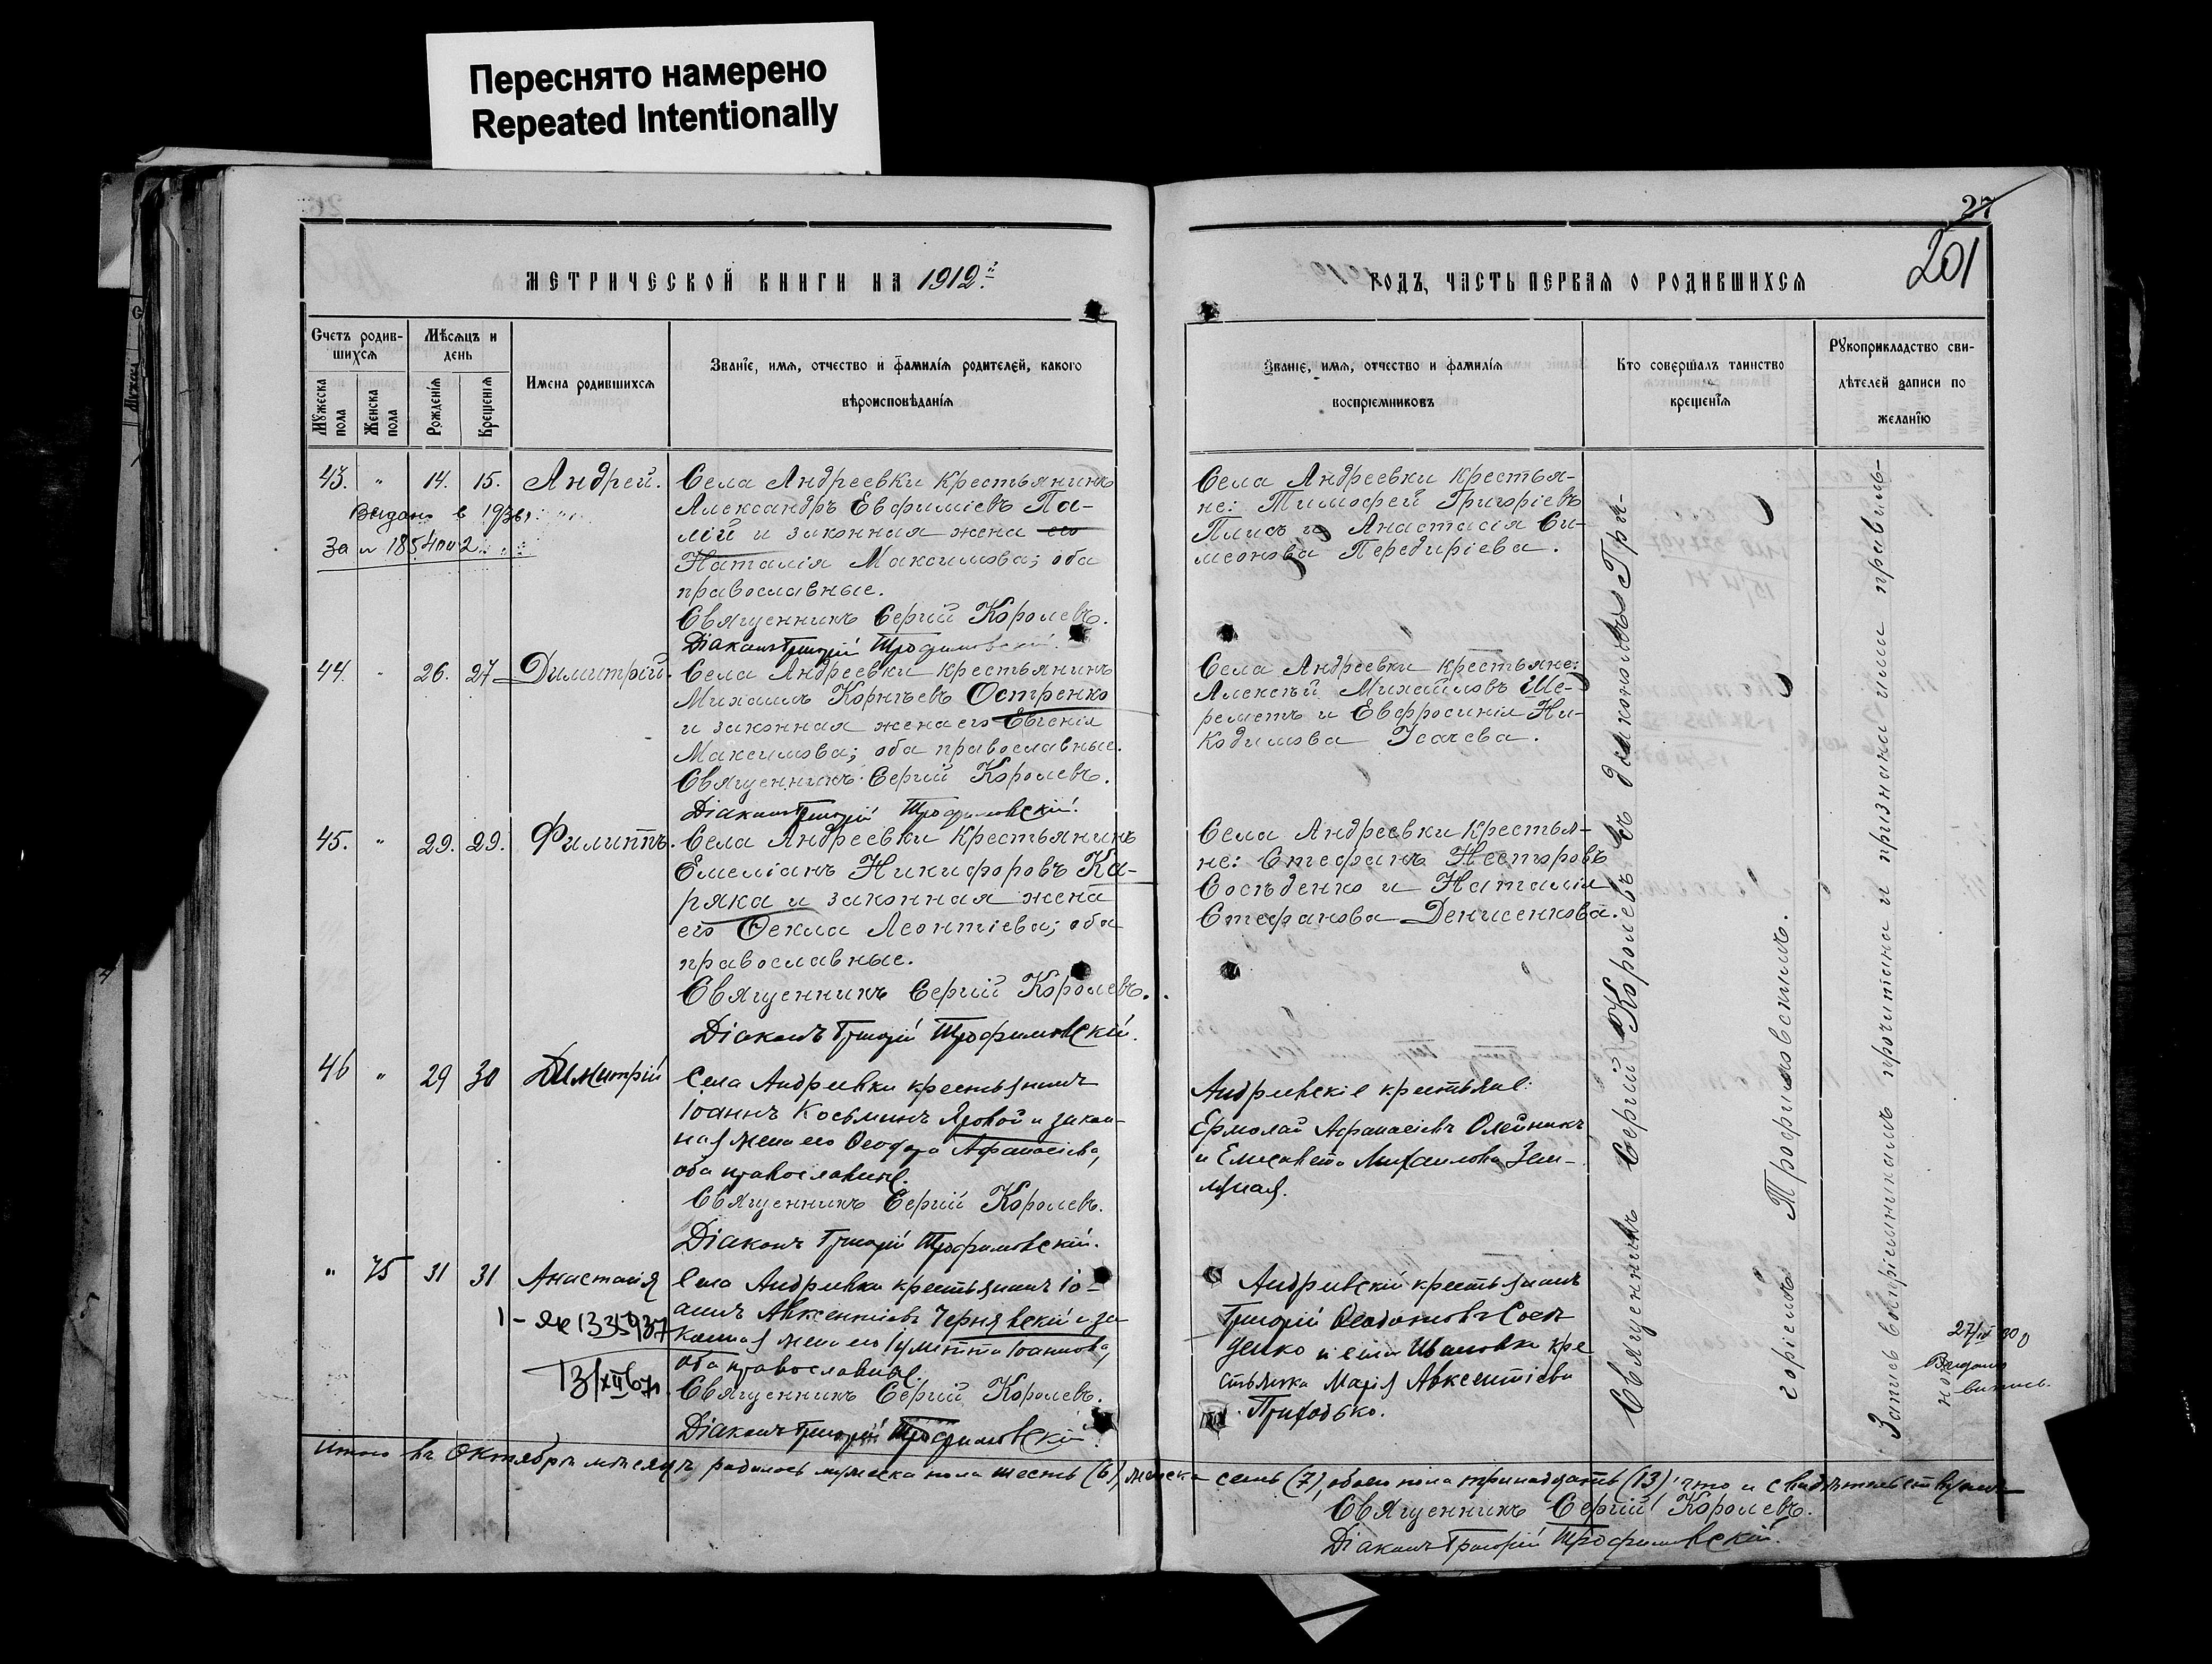 Переснято намерено
Repeated Intentionally
27
201
МЕТРИЧЕСКОЙ КНИГИ НА 1912й
ГОДЪ, ЧАСТЬ ПЕРВАЯ О РОДИВШИХСЯ
Счетъ родив-
шихся
Мѣсяцъ и
день
Мужеска
пола
Женска
пола
Рожденія
Крещенія
Имена родившихся
Званіе, имя, отчество и фамилія родителей, какого
вѣроисповѣданія
Званіе, имя, отчество и фамилія
воспріемниковъ
Кто совершалъ таинство
крещенія
Рукоприкладство сви-
дѣтелей записи по
желанію
43. " 14. 15. Андрей.
Выдано в 1936
за № 1854002
Села Андреевки крестьянинъ
Александръ Евфиміевъ Па-
лій и законная жена его
Наталія Максимова; оба
православные.
Священникъ Сергій Королевъ.
Діаконъ Григорій Трофимовскій.
Села Андреевки крестья-
не: Тимофей Григоріевъ
Плисъ и Анастасія Си-
меонова Передиріева.
44. " 26. 27 Димитрій.
Села Андреевки крестьянинъ
Михаилъ Корнѣевъ Остренко
и законная жена его Евгенія
Максимова; оба православные.
Священникъ Сергій Королевъ.
Діаконъ Григорій Трофимовскій.
Села Андреевки крестьяне:
Алексѣй Михайловъ Ше-
реметъ и Евфросинія Ни-
кодимова Усачева.
45. " 29. 29. Филиппъ.
Села Андреевки крестьянинъ
Емеліанъ Никифоровъ Ка-
ряка и законная жена
его Ѳекла Леонтіева; оба
православные.
Священникъ Сергій Королевъ.
Діаконъ Григорій Трофимовскій.
Села Андреевки крестья-
не: Стефанъ Несторовъ
Сосѣденко и Наталія
Стефанова Денисенкова.
46 " 29 30 Димитрій
Села Андреевки крестьянинъ
Іоаннъ Косьминъ Яровой и закон-
ная жена его Ѳеодора Афанасіева,
оба православные.
Священникъ Сергій Королевъ.
Діаконъ Григорій Трофимовскій.
Андреевскіе крестьяне:
Ермолай Афанасіевъ Олейникъ
и Елисавета Михаилова Зем-
ляная.
" 75 31 31 Анастасія
1-ЯЕ 1335937
13/XII 67г.
Села Андреевки крестьянинъ Іо-
аннъ Авксентіевъ Чернявскій и за
конная жена его Іулитта Іоаннова,
оба православные.
Священникъ Сергій Королевъ.
Діаконъ Григорій Трофимовскій.
Андреевскій крестьянинъ
Григорій Сосѣ
денко и села Ивановки кре
стьянка Марія Авксентіева
Приходько.
Священникъ Сергій Королевъ съ діакономъ Гри-
горіемъ Трофимовскимъ.
Запись воспріемникамъ прочитана и признана ими правиль-
ной
Выдано
Итого въ Октябрѣ мѣсяцѣ родилось мужеска пола шесть (6), женска семь (7), обоего пола тринадцать (13), что и свидѣтельствуемъ
Священникъ Сергій Королевъ.
Діаконъ Григорій Трофимовскій.